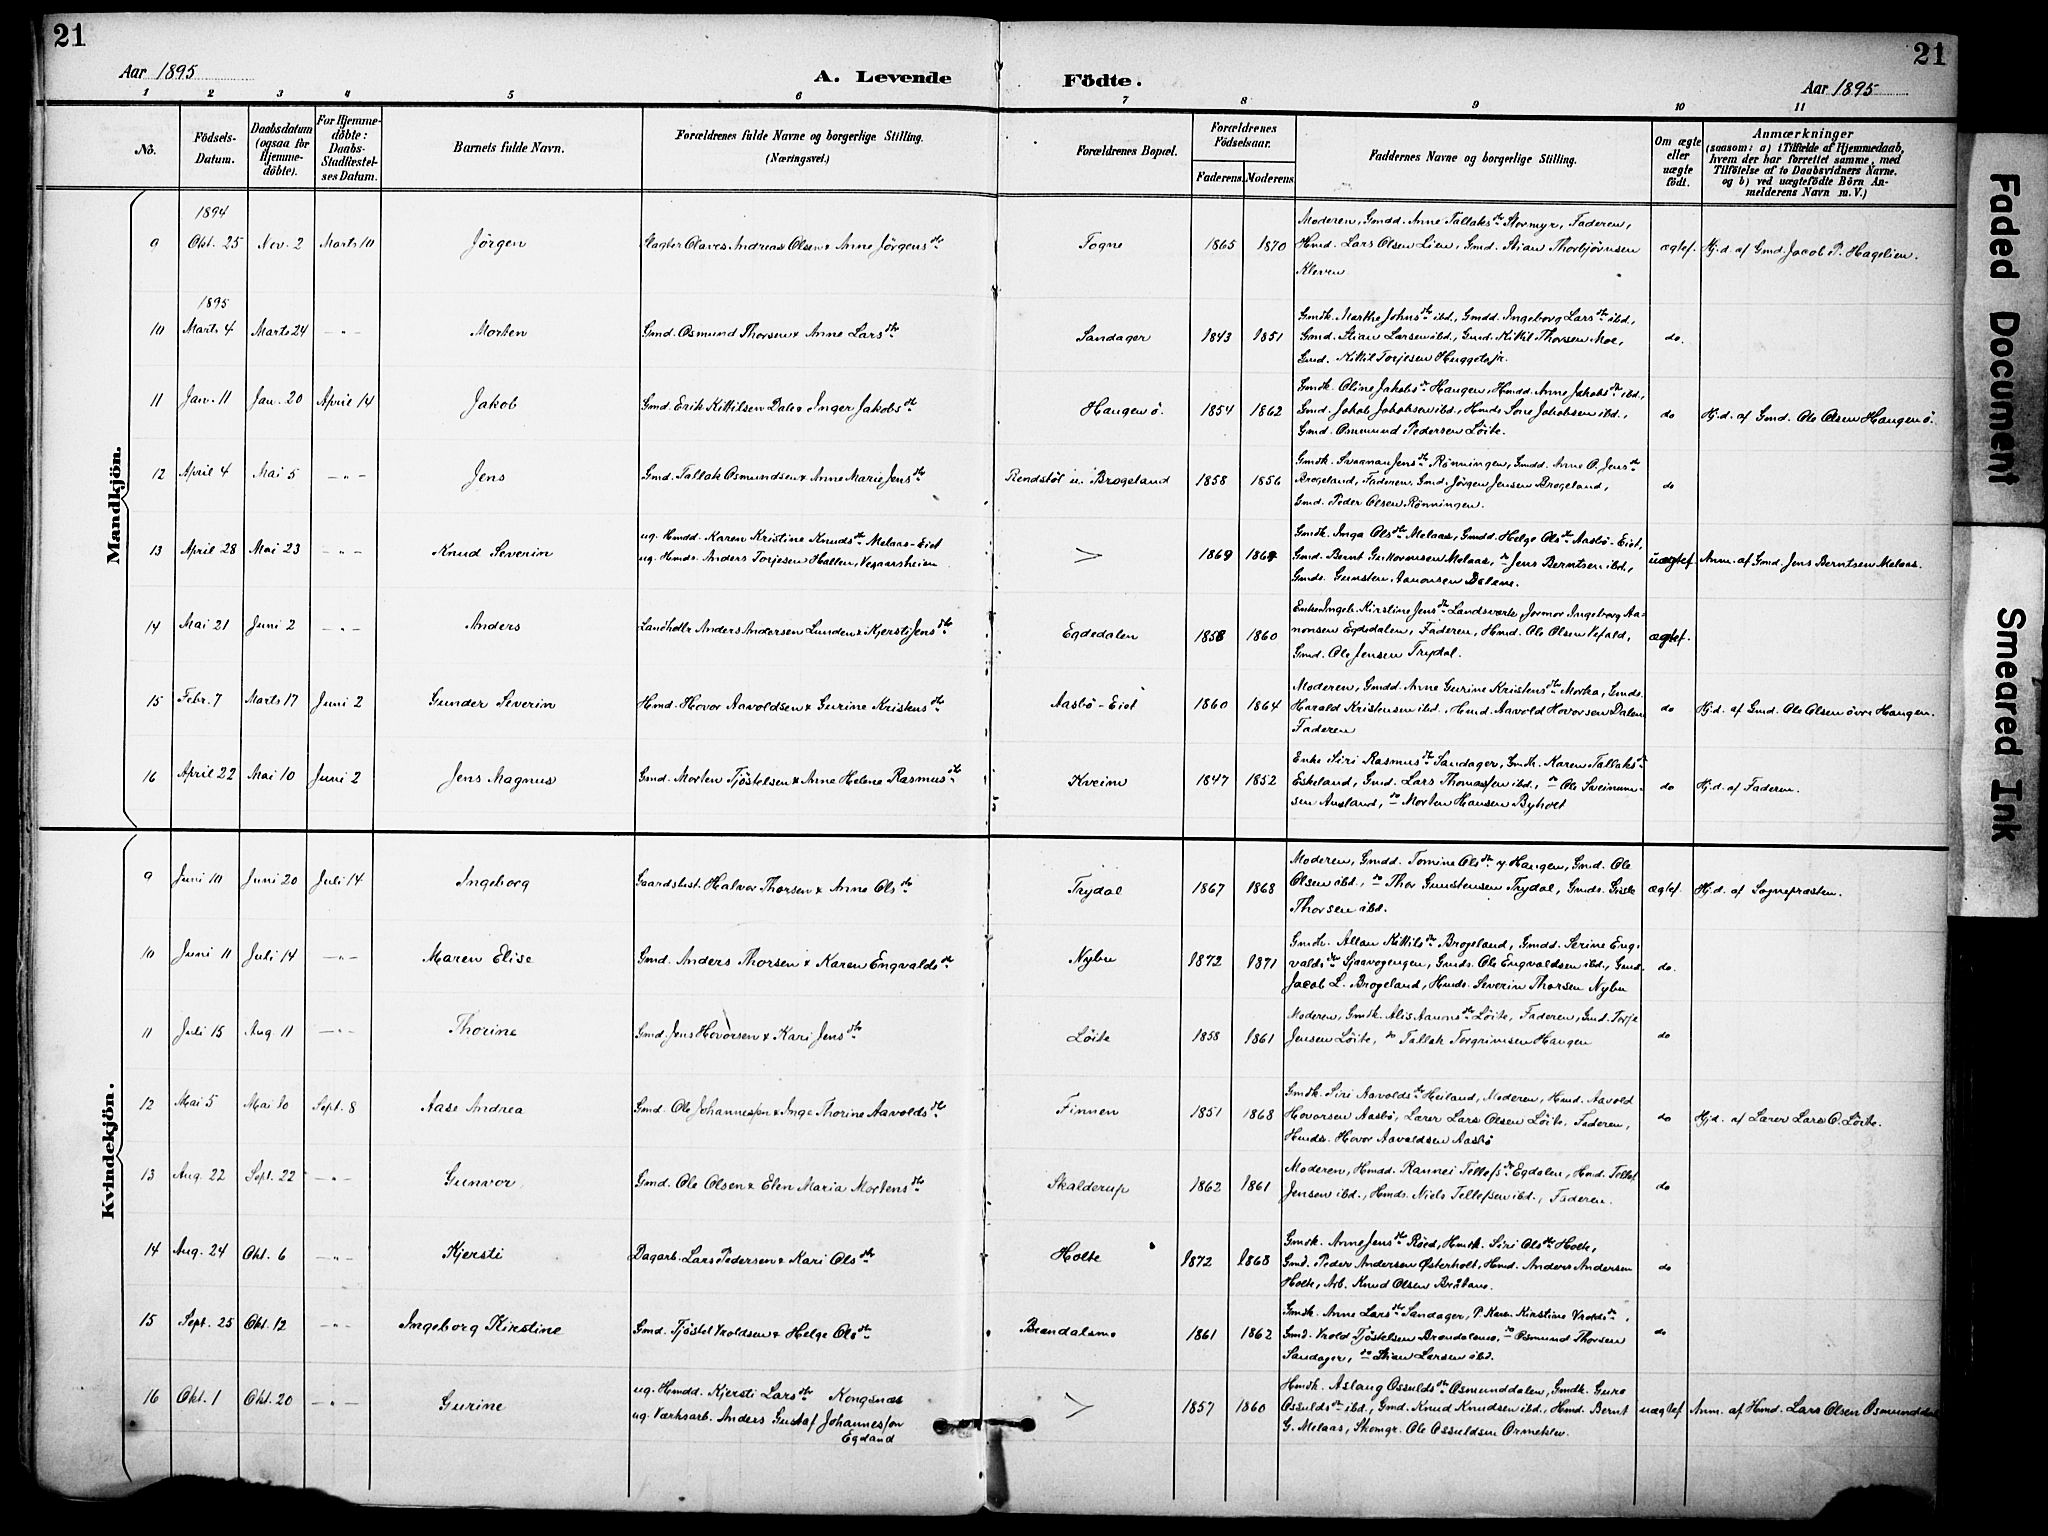 21
21
Aar 1895
A. Levende
Födte.
Aar 1895
1 2 3 4 5 6 7 8 9 10 11
No.
Födsels-
Datum.
Daabsdatum
(ogsaa for
Hjemme-
döbte).
For Hjemme-
döbte:
Daabs-
Stadfæstel-
ses Datum.
Barnets fulde Navn.
Forældrenes fulde Navne og borgerlige Stilling.
(Næringsvei.)
Forældrenes Bopæl.
Forældrenes
Födselsaar.
Faderens. Moderens.
Faddernes Navne og borgerlige Stilling.
Om ægte
eller
uægte
födt.
Anmærkninger
(saasom: a) i Tilfælde af Hjemmedaab,
hvem der har forrettet samme, med
Tilföielse af to Daabsvidners Navne.
og b) ved uægtefödte Börn An-
melderens Navn m. V.)
Mandkjön.
1894
9 Okt. 25 Nov. 2 Marts 10 Jörgen Slagter Olaves Andreas Olsen & Anne Jörgensdtr Togne 1865 1870
Moderen, Gmdd. Anne Tallaksdtr Stormyr, Faderen,
Hmd. Lars Olsen Lien, Gmd. Stian Thorbjörnsen
Kleven
ægtef. Hj.d. af Gmd. Jacob P. Hagelien.
1895
10 Marts 4 Marts 24 -"- Morten Gmd. Osmund Thorsen & Anne Larsdtr Sandager 1843 1851
Gmdk. Marthe Johnsdtr ibd., Gmdd. Ingeborg Larsdtr ibd.,
Gmd. Stian Larsen ibd., Gmd. Kittil Thorsen Moe,
Gmd. Kittil Torjesen
do.
11 Jan. 11 Jan. 20 April 14 Jakob Gmd. Erik Kittilsen Dale & Inger Jakobsdtr Haugen ö. 1854 1862
Gmdk. Oline Jakobsdtr Haugen, Hmdd. Anne Jakobsdtr ibd.,
Gmd. Jakob Jakobsen ibd., Hmds. Jakobsen ibd.,
Gmd. Osmund Pedersen Löite.
do Hj.d. af Gmd. Ole Olsen Haugen ö.
12 April 4 Mai 5 -"- Jens Gmd. Tallak Osmundsen & Anne Marie Jensdtr Rendstöl u. Brogeland 1858 1856
Gmdk. Jensdtr Rönningen, Gmdd. Anne O. Jensdtr
Brogeland, Faderen, Gmd. Jörgen Jensen Brogeland,
Gmd. Peder Olsen Rönningen.
do
13 April 28 Mai 23 -"- Knud Severin
ug. Hmdd. Karen Kristine Knudsdtr Melaas-Eiet
ug. Hmds. Anders Torjesen Hallen, Vegaarsheien
> 1869 186
Gmdk. Inga Olsdtr Melaas, Gmdd. Helge Olsdtr Aasbö-Eiet,
Gmd. Bernt Guttormsen Melaas, do Jens Berntsen ibd.,
Gmds. Gunsten Aanonsen Dalene.
uægtef. Anm. af Gmd. Jens Berntsen Melaas.
14 Mai 21 Juni 2 -"- Anders Landhdlr Anders Andersen Lunden & Kjersti Jensdtr Egdedalen 1858 1860
Enke Ingeb. Kirstine Jensdtr Landsværk, Jormor Ingeborg Aa-
nonsen Egdedalen, Faderen, Hmd. Ole Olsen Vefald,
Gmd. Ole Jensen Trydal.
ægtef.
15 Febr. 7 Marts 17 Juni 2 Gunder Severin Hmd. Hovor Aavoldsen & Gurine Kristensdtr Aasbö-Eiet 1860 1864
Moderen, Gmdd. Anne Gurine Kristensdtr Morka, Gmds.
Harald Kristensen ibd., Hmd. Aavold Hovorsen Dalen
Faderen
do Hj.d. af Gmd. Ole Olsen övre Haugen.
16 April 22 Mai 10 Juni 2 Jens Magnus Gmd. Morten Tjöstelsen & Anne Helene Rasmusdtr Kveim 1847 1852
Enke Siri Rasmusdtr Sandager, Gmdk. Karen Tallaksdtr
Eskeland, Gmd. Lars Thomassen ibd., do Ole Sveinum-
sen Ausland, do Morten Hansen Byholt
do Hj.d. af Faderen.
Kvindekjön.
9 Juni 10 Juni 20 Juli 14 Ingeborg Gaardsbst. Halvor Thorsen & Anne Olsdtr Trydal 1867 1868
Moderen, Gmdd. Tomine Olsdtr y. Haugen, Gmd. Ole
Olsen ibd., do Thor Gunstensen Trydal, Gmds. Gisle
Thorsen ibd.
ægtef. Hj.d. af Sognepræsten.
10 Juni 11 Juli 14 -"- Maren Elise Gmd. Anders Thorsen & Karen Engvaldsdtr Nybu 1872 1871
Gmdk. Allau Kittilsdtr Brogeland, Gmdd. Serine Eng-
valdsdtr Sjaavogengen, Gmds. Ole Engvaldsen ibd., Gmd.
Jacob L. Brogeland, Hmds. Severin Thorsen Nybu
do.
11 Juli 15 Aug. 11 -"- Thorine Gmd. Jens Hovorsen & Kari Jensdtr Löite 1858 1861
Moderen, Gmdk. Alis Aanonsdtr Löite, Faderen, Gmd. Torje
Jensen Löite, do Tallak Torgrimsen Haugen
do
12 Mai 5 Mai 10 Sept. 8 Aase Andrea Gmd. Ole Johannessen & Inge Thorine Aavoldsdtr Finnen 1851 1868
Gmdk. Siri Aavoldsdtr Heiland, Moderen, Hmd. Aavold
Hovorsen Aasbö, Lærer Lars Olsen Löite, Faderen,
Hmds. Hovor Aavoldsen Aasbö
do Hjd. af Lærer Lars O. Löite.
13 Aug. 22 Sept. 22 -"- Gunvor Gmd. Ole Olsen & Elen Maria Mortensdtr Skalderup 1862 1861
Moderen, Hmdd. Rannei Tellefsdtr Egdalen, Hmd. Tellef
Jensen ibd., Hmds. Niels Tellefsen ibd., Faderen.
do
14 Aug. 24 Okt. 6 -"- Kjersti Dagarb. Lars Pedersen & Kari Olsdtr Holte 1872 1868
Gmdk. Anne Jensdtr Röed, Hmdk. Siri Olsdtr Holte,
Gmd. Peder Andersen Østerholt, Hmd. Anders Andersen
Holte, Arb. Knud Olsen Bråtane.
do
15 Sept. 25 Okt. 12 -"- Ingeborg Kirstine Gmd. Tjöstel Vroldsen & Helge Olsdtr Brændalsmo 1861 1862
Gmdk. Anne Larsdtr Sandager, P. Karen Kirstine Vroldsdtr,
Gmd. Vrold Tjöstelsen Brændalsmo, do Osmund Thorsen
Sandager, do Stian Larsen ibd.
do
16 Okt. 1 Okt. 20 -"- Gurine
ug. Hmdd. Kjersti Larsdtr Kongsnæs
ug. Værksarb. Anders Gustaf Johannesson
Egdand
> 1857 1860
Hmdk. Aslaug Ossuldsdtr Osmunddalen, Gmdk. Guro
Ossuldsdtr ibd., Gmd. Knud Knudsen ibd., Hmd. Bernt
G. Melaas, Skomgr. Ole Ossuldsen Ormeklev.
uægtef Anm. af Hmd. Lars Olsen Osmunddalen
Faded Document
Smeared Ink